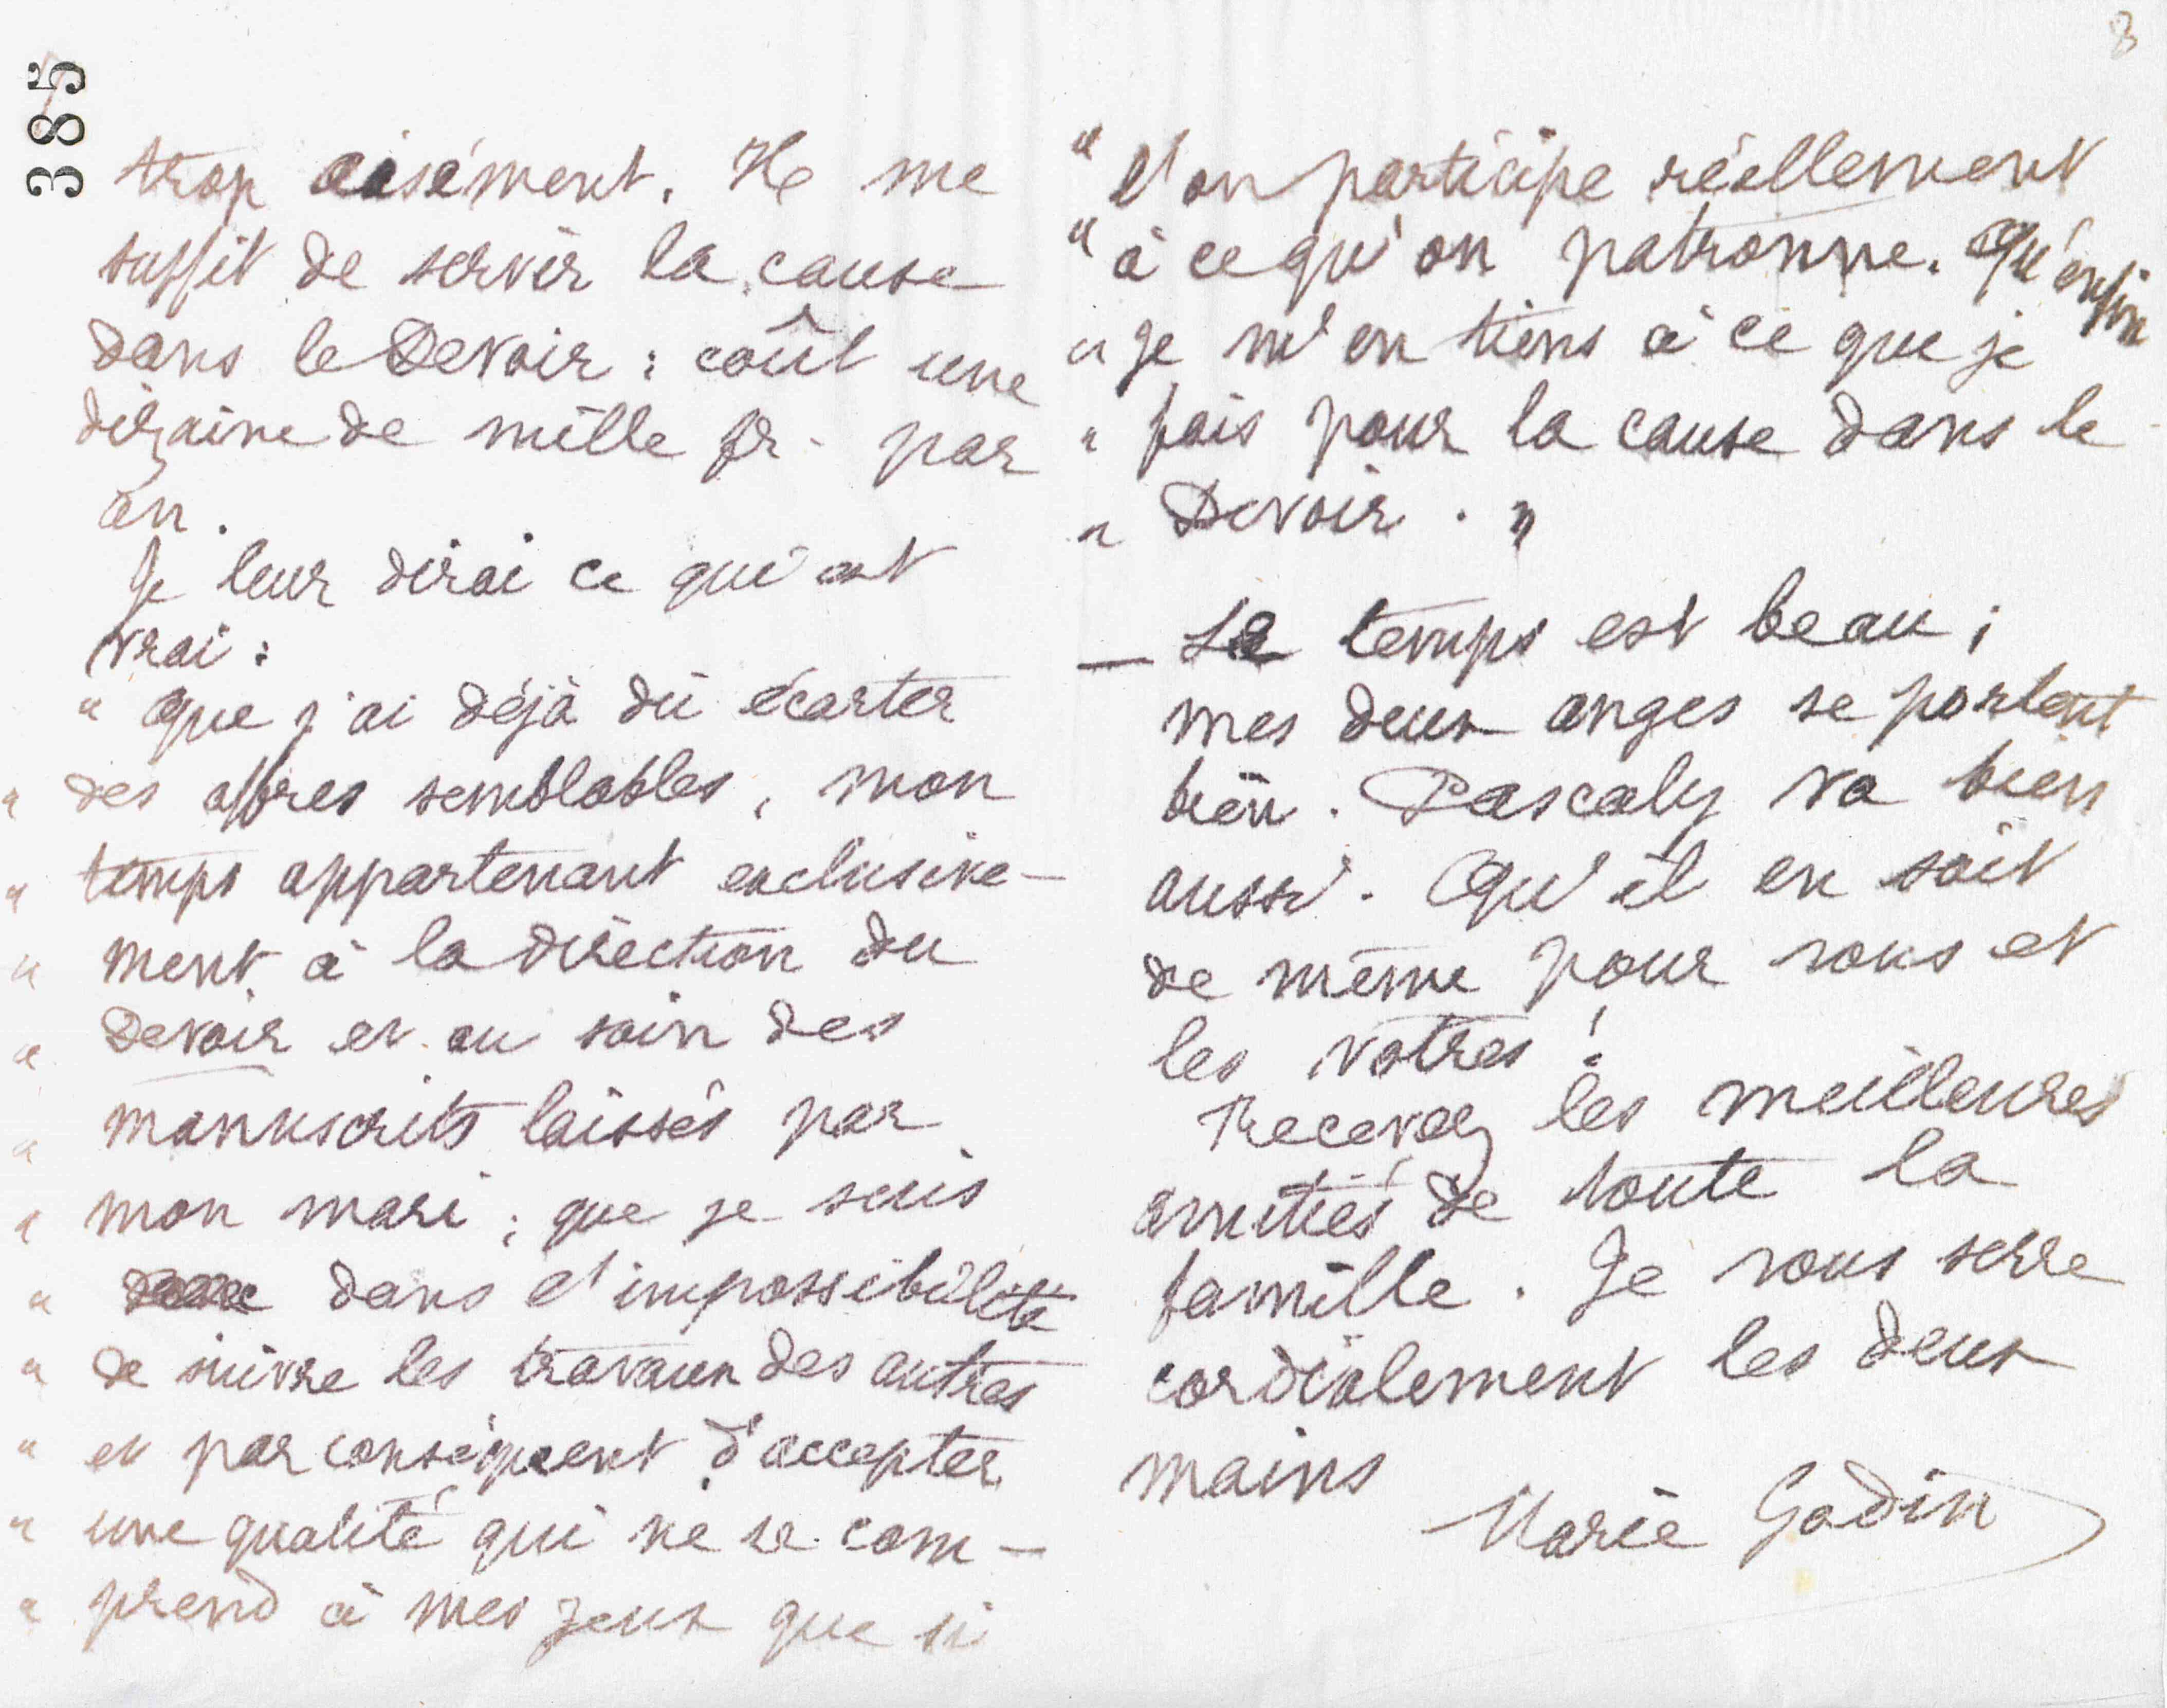 385
8
trop aisément. Il me
suffit de servir la cause
dans le Devoir : coût une
dizaine de mille fr. par
an.
Je leur dirai ce qui est
vrai :
" que j'ai déjà dû écarter
" des offres semblables, mon
" temps appartenant exclusive-
" ment à la direction du
" Devoir et au soin des
" manuscrits laissés par
" mon mari ; que je suis
" dans l'impossibilité
" de suivre les travaux des autres
" et par conséquent d'accepter
" une qualité qui ne se com-
" prend à mes yeux que si
" l'on participe réellement
" à ce qu'on patronne. Qu'enfin
" je m'en tiens à ce que je
" fais pour la cause dans le
" Devoir. "
— Le temps est beau ;
mes deux anges se portent
bien. Pascaly va bien
aussi. Qu'il en soit
de même pour vous et
les votres !
Recevez les meilleures
amitiés de toute la
famille. Je vous serre
cordialement les deux
mains
Marie Godin